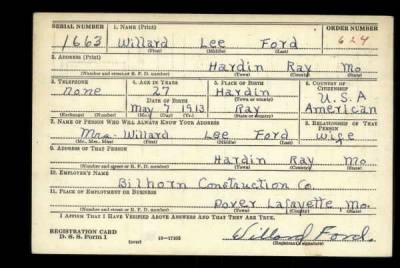 SERIAL NUMBER 1. NAME (Print) ORDER NUMBER
1663 Willard Lee Ford 624
(First) (Middle) (Last)
2. ADDRESS (Print)
Hardin Ray Mo
(Number and street or R. F. D. number) (Town) (County) (State)
3. TELEPHONE 4. AGE IN YEARS 5. PLACE OF BIRTH 6. COUNTRY OF CITIZENSHIP
None 27 Hardin U.S.A
DATE OF BIRTH (Town or county)
May 7 1913 Ray American
(Exchange) (Number) (Mo.) (Day) (Yr.) (State or country)
7. NAME OF PERSON WHO WILL ALWAYS KNOW YOUR ADDRESS 8. RELATIONSHIP OF THAT PERSON
Mrs. Willard Lee Ford Wife
(Mr., Mrs., Miss) (First) (Middle) (Last)
9. ADDRESS OF THAT PERSON
Hardin Ray Mo.
(Number and street or R. F. D. number) (Town) (County) (State)
10. EMPLOYER'S NAME
Bilhorn Construction Co.
11. PLACE OF EMPLOYMENT OR BUSINESS
Dover Lafayette Mo.
(Number and street or R. F. D. number) (Town) (County) (State)
I AFFIRM THAT I HAVE VERIFIED ABOVE ANSWERS AND THAT THEY ARE TRUE.
REGISTRATION CARD
D. S. S. Form 1 (over) 16—17105 Willard Ford.
(Registrant's signature)